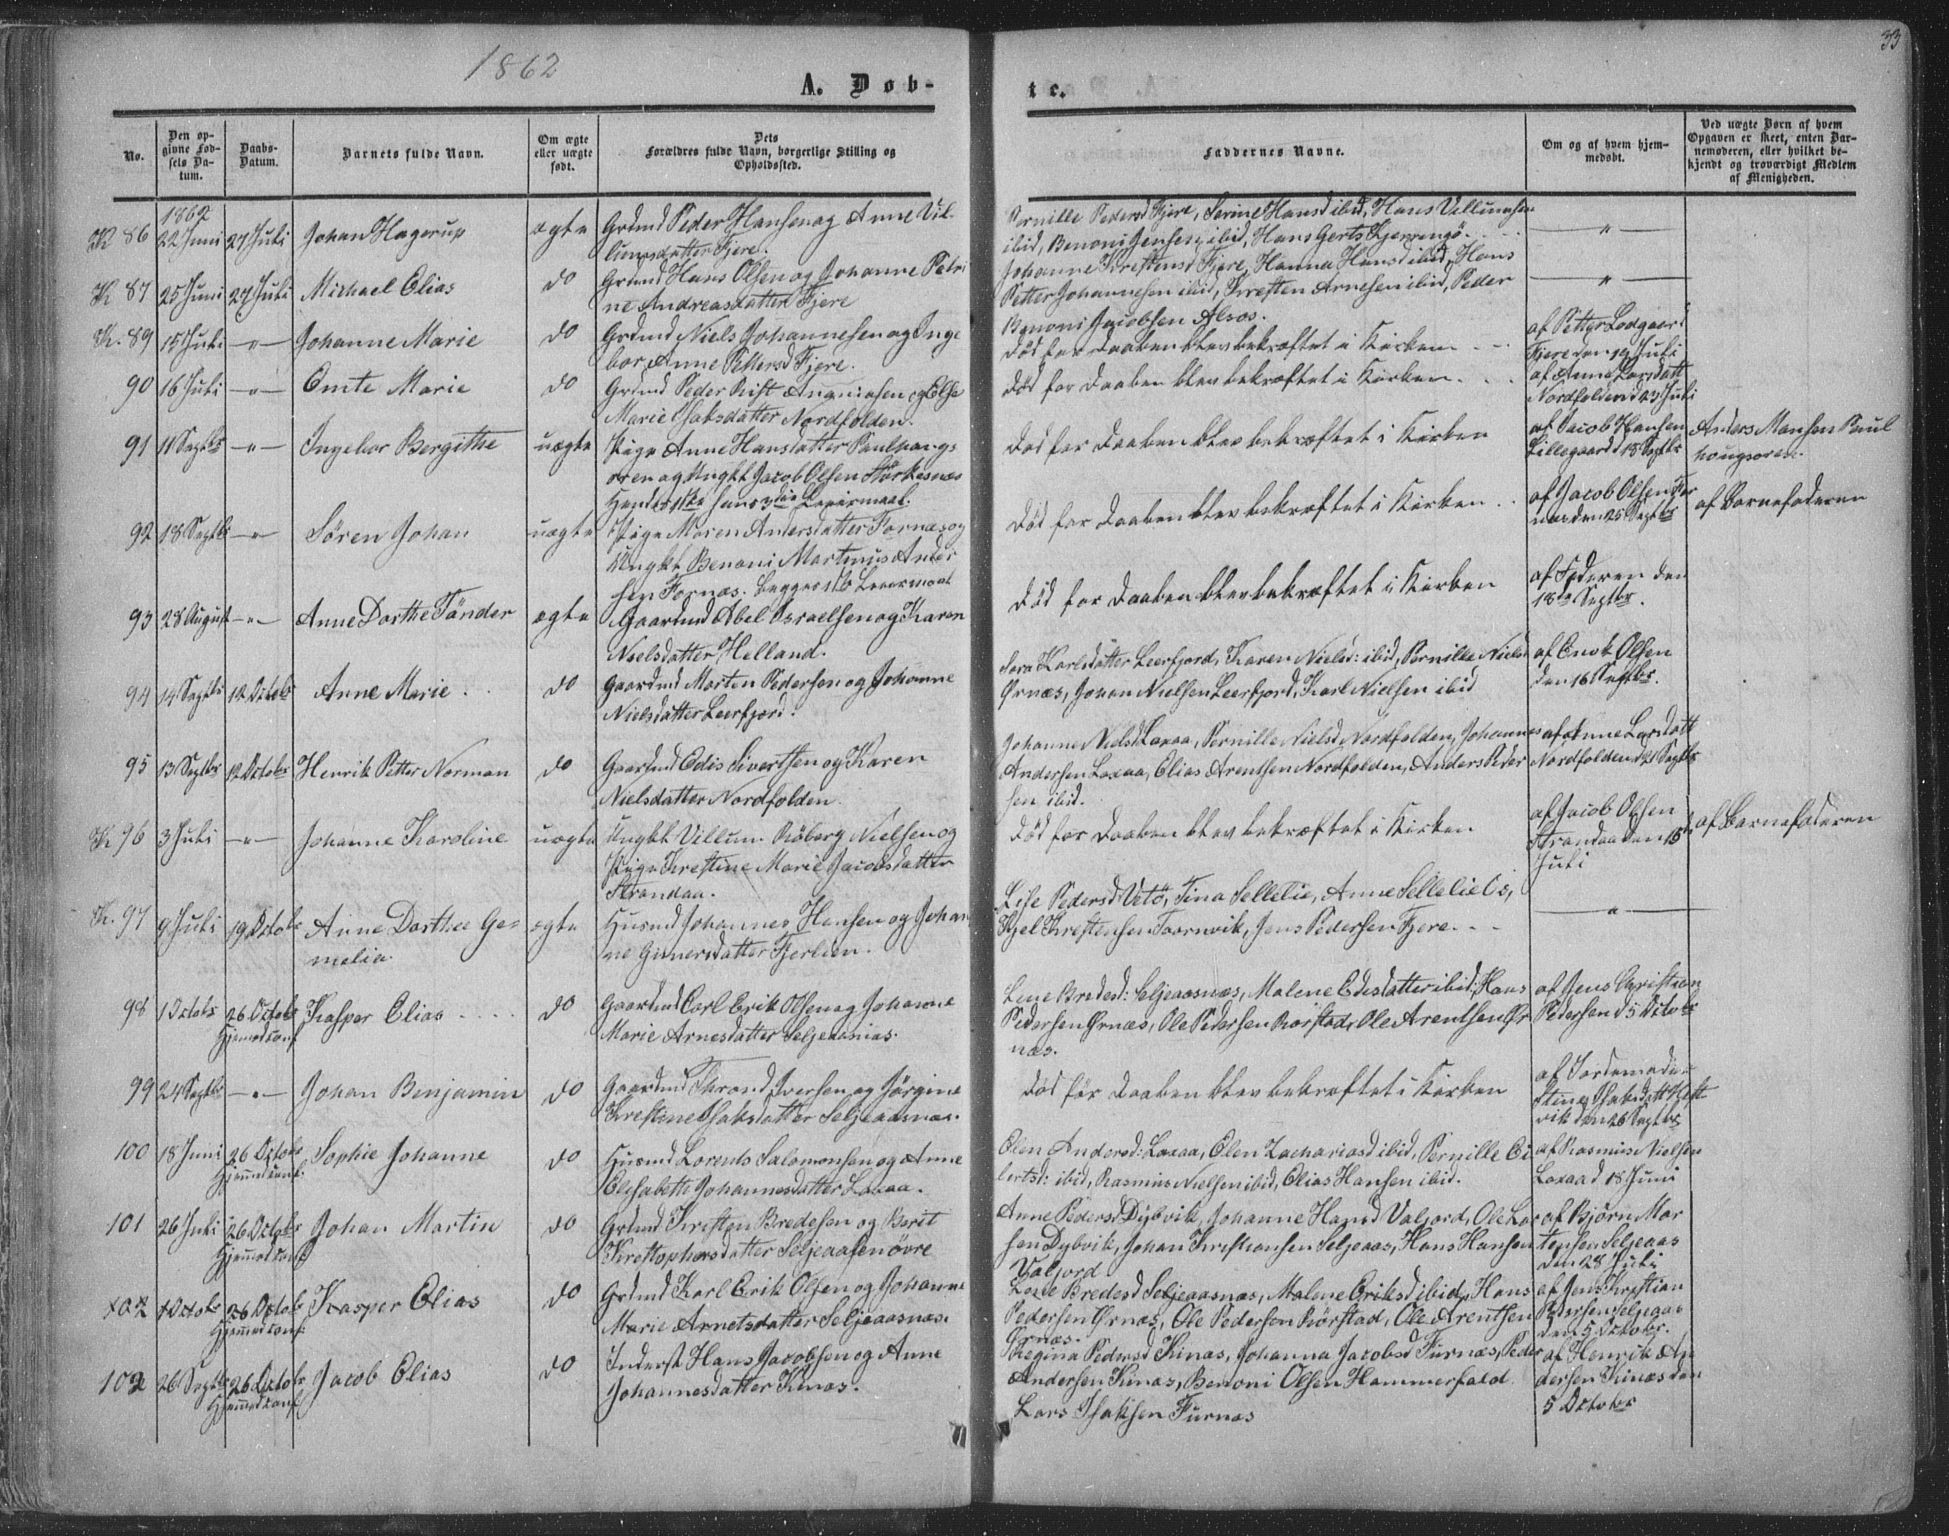 1862
33
A. Døb-
te.
No.
Den op-
givne Fød-
sels Da-
tum.
Daabs-
Datum.
Barnets fulde Navn.
Om ægte
eller uægte
født.
Dets
Forældres fulde Navn, borgerlige Stilling og
Opholdssted.
Faddernes Navne.
Om og af hvem hjem-
medøbt.
Ved uægte Børn af hvem
Opgaven er skeet, enten Bar-
nemoderen, eller hvilket be-
kjendt og troværdigt Medlem
af Menigheden.
1862
K 86 22 Juni 27 Juli Johan Hagerup ægte Grdmd Peder Hansen og Anne Vil-
lumsdatter Fjere.
Pernille Pedersd Fjere, Serine Hansd ibid, Hans Villumsen
ibid, Benoni Jensen ibid, Hans Gerts Kjerringø.
K 87 25 Juni 27 Juli Michael Elias do Grdmd Hans Olsen og Johanne Petri
ne Andreasdatter Fjere
Johanne Kristensd Fjere, Hanna Hansd ibid, Hans
Petter Johannesen ibid, Kresten Arnesen ibid, Peder
Benoni Jacobsen Alsos.
K. 89 15 Juli -"- Johanne Marie do Grdmd Niels Johannesen og Inge
bor Anne Pettersd Fjere.
Død før Daaben blev bekræftet i Kirken
af Petter Lodgaard
Fjere den 19 Juli
90 16 Juli -"- Emte Marie do Grdmd Peder Rist Ananiasen og Else
Marie Isaksdatter Nordfolden.
Død før Daaben blev bekræftet i Kirken.
af Anne Larsdatt
Nordfolden d 23 Juli
91 11 Septbr -"- Ingebor Bergithe uægte Pige Anne Hansdatter Paulhaugs
oren og Ungkl Jacob Olsen Størkesnæs
Hendes 1ste hans 3die Leiermaal.
Død før Daaben blev bekræftet i Kirken
af Jacob Hansen
Lillegaard d 18 Septbr
Anders Monsen Paul
hougsoren.
92 18 Septbr -"- Søren Johan uægte Pige Maren Andersdatter Fornæs og
Ungkl Benoni Martinus Ander
sen Fornæs. Begges 1ste Leiermaal
Død før Daaben blev bekræftet i Kirken
af Jacob Olsen For
næs den 25 Septbr
af Barnefaderen
93 28 August -"- Anne Dorthe Tønder ægte Gaardmd Abel Israelsen og Karen
Nielsdatter Helland.
Død før Daaben blev bekræftet i Kirken
af Faderen den
18de Septbr.
94 14 Septbr 12 Octobr Anne Marie do Gaardmd Morten Pedersen og Johanne
Nielsdatter Leerfjord.
Sara Karlsdatter Leerfjord, Karen Nielsd: ibid, Pernille Nielsd
Ørnæs, Johan Nielsen Leerfjord, Karl Nielsen ibid
af Enok Olsen
den 16 Septbr.
95 13 Septbr 12 Octobr Henrik Petter Norman do Gaardmd Edis Sivertsen og Karen
Nielsdatter Nordfolden.
Johanne Nielsd Laxaa, Pernille Nielsd Nordfolden, Johannes
Andersen Laxaa, Elias Arentsen Nordfolden, Anders Peder
sen ibid.
af Anne Larsdatt
Nordfolden d 21 Septbr
K 96 3 Juli -"- Johanne Karoline uægte Ungkl Villum Røberg Nielsen og
Pige Krestine Marie Jacobsdatter
Strandaa.
Død før Daaben blev bekræftet i Kirken
af Jacob Olsen
Strandaa den 15
Juli
af Barnefaderen
K. 97 9 Juli 19 Octobr Anne Dorthea Ge-
melia. ægte Husmd Johannes Hansen og Johan
ne Gunersdatter Fjerlien.
Lise Pedersd Vetø, Tina Selletie, Anne Selletie
Kjel Krestensen Toornvik, Jens Pedersen Fjere.
98 1 Octobr 26 Octobr
Hjemmed conf Kasper Elias do Gaardmd Carl Erik Olsen og Johanne
Marie Arnesdatter Seljeaasnæs.
Lene Bredesd: Seljeaasnæs, Malene Edisdatter ibid, Hans
Pedersen Ørnæs, Ole Pedersen Rørstad, Ole Arentsen Ør
næs.
af Jens Christian
Pedersen d 5 Octobr
99 24 Septbr -"- Johan Benjamin do Gaardmd Thrond Iversen og Jørgine
Krestine Isaksdatter Seljeaasnæs.
Død før Daaben blev bekræftet i Kirken
af Jordemoder
Stine Isaksdatt
vik den 26 Septbr
100 18 Juni 26 Octobr
Hjemmed conf. Sophie Johanne do Husmd Lorents Salomonsen og Anne
Elisabeth Johannesdatter Laxaa.
Elen Andersd: Laxaa, Elen Zachariasd ibid, Pernille Ei
lertsd: ibid, Rasmus Nielsen ibid, Elias Hansen ibid.
af Rasmus Nielsen
Laxaa d 18 Juni
101 26 Juli 26 Octobr
Hjemmed conf Johan Martin do Grdmd Kresten Bredesen og Berit
Krestophersdatter Seljeaasen øvre
Anne Pedersd Dybvik, Johanne Hansd Valjord, Ole Lar
sen Dybvik, Johan Kristiansen Seljeaas, Hans Hansen
Valjord
af Bjørn Mor
tensen Seljeaas
den 28 Juli
102 1 Octobr 26 Octobr
Hjemmed conf Kasper Elias do Grdmd Karl Erik Olsen og Johanne
Marie Arnetsdatter Seljeaasnæs.
Lene Bredesd Seljeaasnæs, Malene Eriksd ibid, Hans
Pedersen Ørnæs, Ole Pedersen Rørstad, Ole Arentsen
Ørnæs.
af Jens Kristian
Pedersen Seljeaas
den 5 Octobr.
102 26 Septbr 26 Octobr
Hjemmed conf Jacob Elias do Inderst Hans Jacobsen og Anne
Johannesdatter Kinæs.
Regina Pedersd Kinæs, Johanna Jacobsd Furnæs, Peder
Andersen Kinæs, Benoni Olsen Hammerfald
Lars Isaksen Furnæs
af Henrik An
dersen Kinæs den
5 Octobr